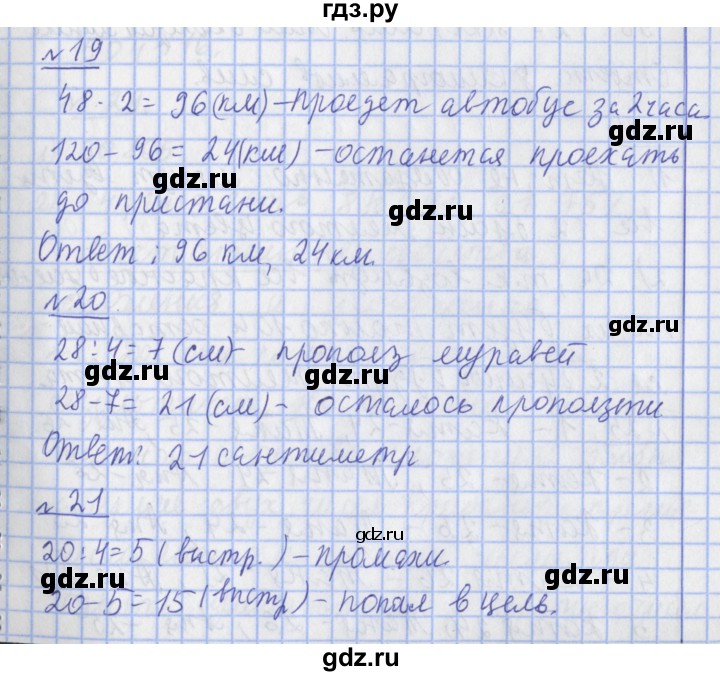 гдз.ру
№19
48·2=96(км)-проедет автобус за 2 часа.
120-96=24(км)-останется проехать
gdz.ru
до пристани.
gdz.ru
Ответ: 96 км, 24 км.
№20
gdz.ru
28:4=7(см)- прополз муравей
gdz.ru
gdz.ru
28-7=21(см)- осталось проползти
Ответ: 21 сантиметр
№21
gdz.ru
20:4=5(выстр.)-промахи.
gdz.ru
gdz.ru
20-5=15(выстр)-попал в цель.
gdz.ru